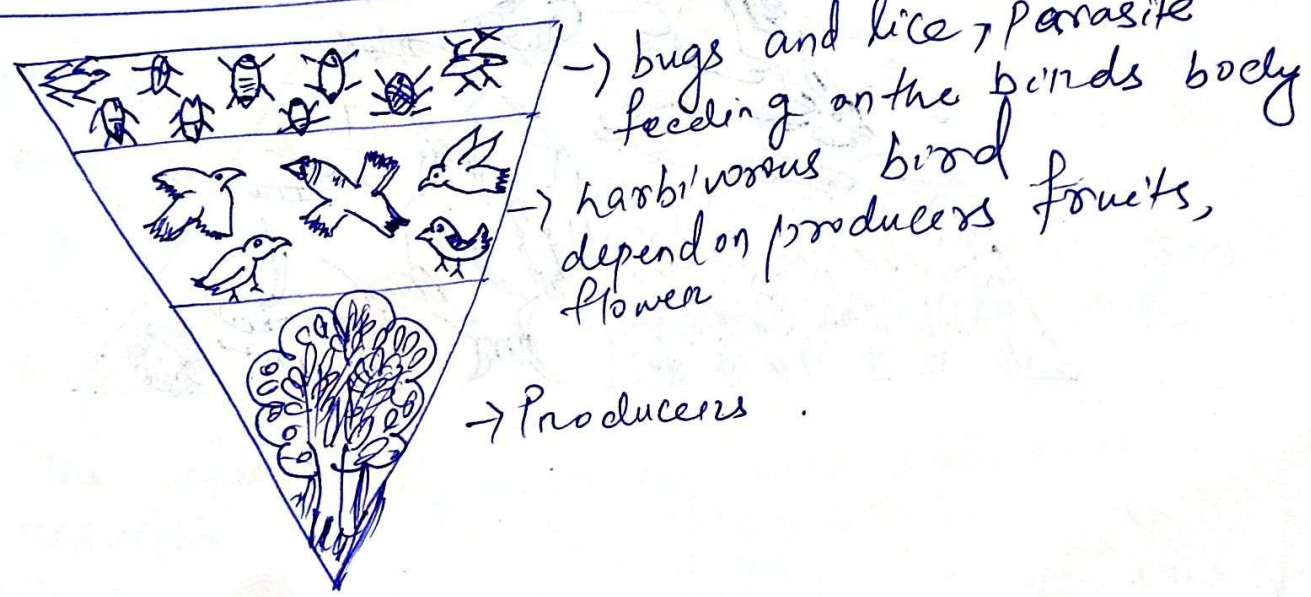 → bugs and lice, Parasite
feeding on the birds body
→ harbivorous bird
depend on producers fruits,
flower
→ Producers .